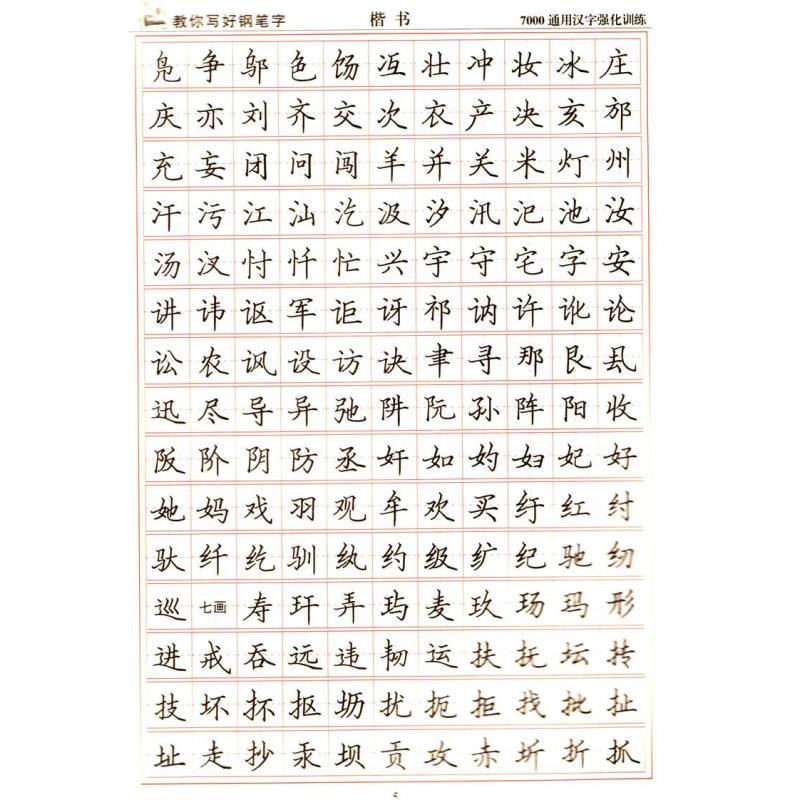 教你写好钢笔字 楷书 7000通用汉字强化训练
凫争邬色饧冱壮冲妆冰庄
庆亦刘齐交次衣产决亥邡
充妄闭问闯羊并关米灯州
汗污江汕汔汲汐汛汜池汝
汤汊忖忏忙兴宇守宅字安
讲讳讴军讵讶祁讷许讹论
讼农讽设访诀聿寻那艮厾
迅尽导异弛阱阮孙阵阳收
阪阶阴防丞奸如妁妇妃好
她妈戏羽观牟欢买纡红纣
驮纤纥驯纨约级纩纪驰纫
巡七画寿玕弄玙麦玖玚玛形
进戒吞远违韧运扶抚坛抟
技坏抔抠坜扰扼拒找批扯
址走抄汞坝贡攻赤圻折抓